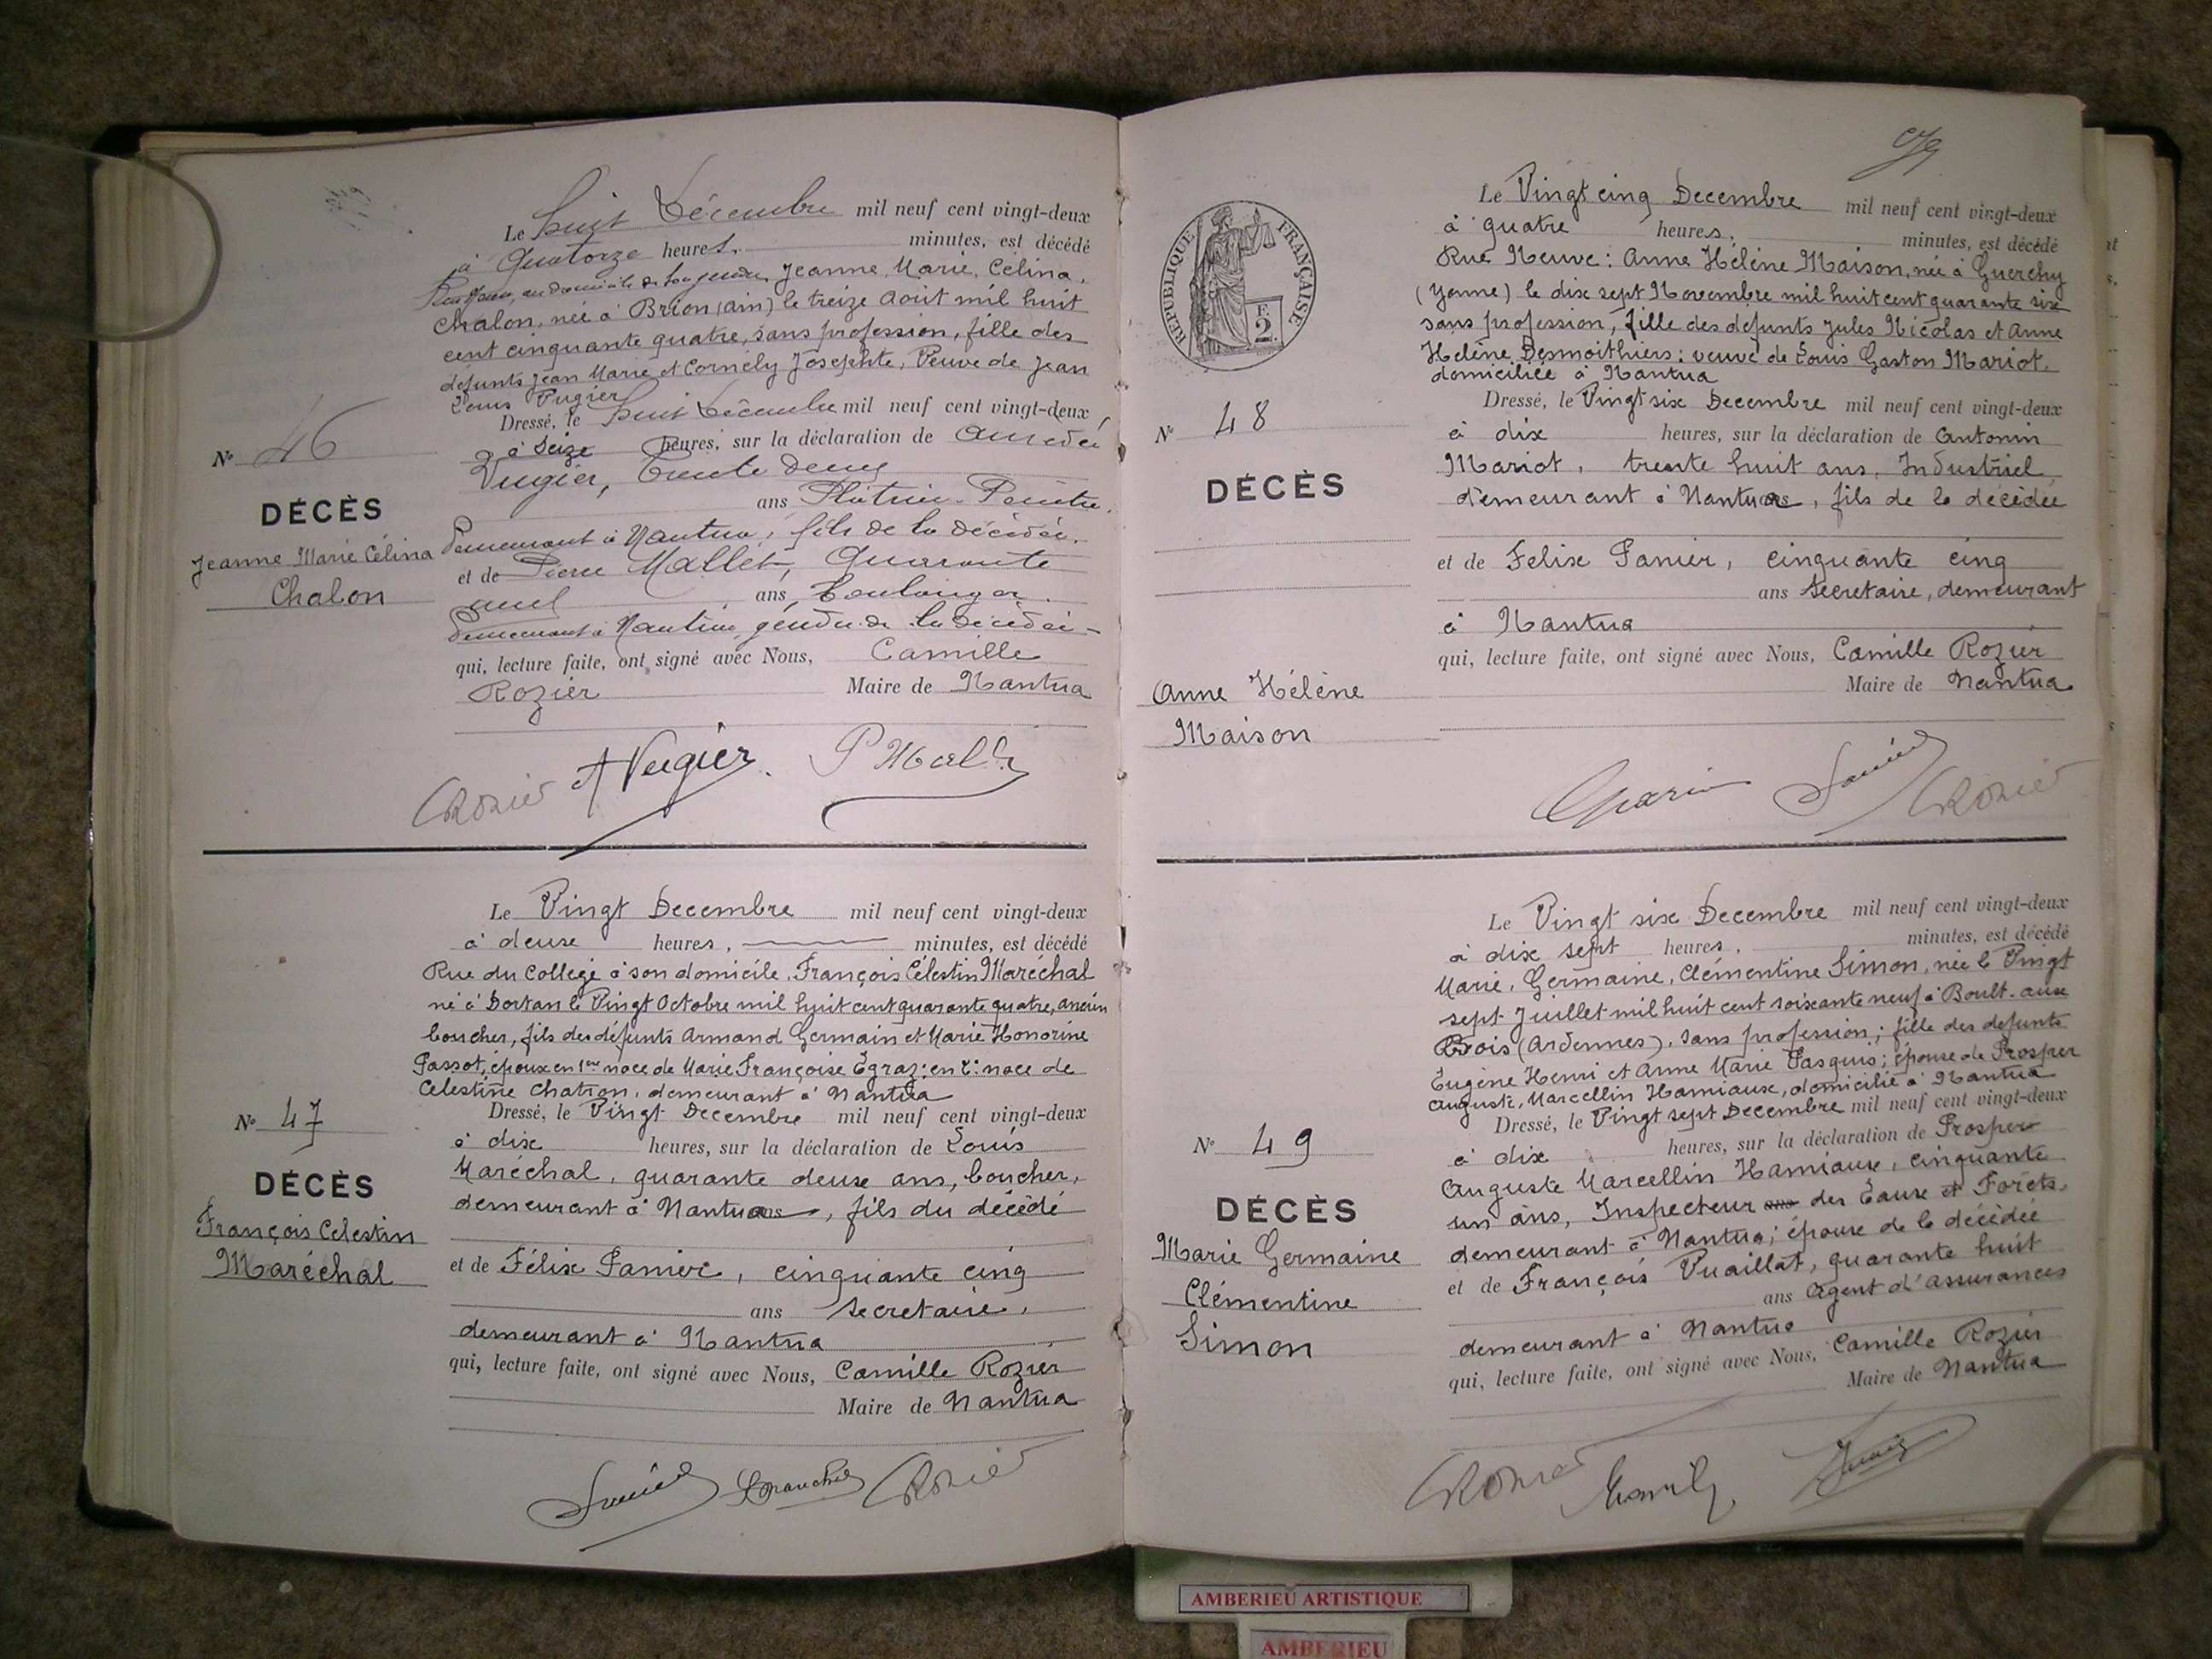 Le huit Décembre mil neuf cent vingt-deux
à Quatorze heures, minutes, est décédé
au domicile de son gendre, Jeanne, Marie, Célina,
Chalon, née à Brion (ain) le treize Août mil huit
cent cinquante quatre, sans profession, fille des
défunts Jean Marie et Cornély Josephte, Veuve de Jean
Louis Vugier
Dressé, le huit Décembre mil neuf cent vingt-deux
à Seize heures, sur la déclaration de Amédée
Vugier, trente deux
ans Plâtrier-Peintre,
demeurant à Nantua, fils de la décédée.
et de Pierre Mallet, Quarante
ans, boulanger.
demeurant à Nantua, gendre de la décédée
qui, lecture faite, ont signé avec Nous, Camille
Rozier Maire de Nantua
No 46
DÉCÈS
Jeanne Marie Célina
Chalon
CRozier AVugier P Mallet
Le Vingt Decembre mil neuf cent vingt-deux
à deuxe heures, minutes, est décédé
Rue du Collège à son domicile, François Célestin Maréchal
né à Dortan le Vingt Octobre mil huit cent quarante quatre, ancien
boucher, fils des défunts Armand Germain et Marie Honorine
Passot, époux en 1ère noce de Marie Françoise Egraz; en 2e noce de
Celestine Chatron, demeurant à Nantua
Dressé, le Vingt Decembre mil neuf cent vingt-deux
à dix heures, sur la déclaration de Louis
Maréchal, quarante deux ans, boucher,
demeurant à Nantua ans, fils du décédé
et de Félix Panier, cinquante cinq
ans secretaire,
demeurant à Nantua
qui, lecture faite, ont signé avec Nous, Camille Rozier
Maire de Nantua
No 47
DÉCÈS
François Celestin
Maréchal
Panier CRozier
RÉPUBLIQUE FRANÇAISE
F.
2.
Le Vingt cinq Decembre mil neuf cent vingt-deux
à quatre heures, minutes, est décédé
Rue Neuve: Anne Hélène Maison, née à Guerchy
(Yonne) le dix sept Novembre mil huit cent quarante six
sans profession, fille des défunts Jules Nicolas et Anne
Helène Desmoithiers: veuve de Louis Gaston Mariot.
domiciliée à Nantua
Dressé, le Vingt six Decembre mil neuf cent vingt-deux
à dix heures, sur la déclaration de Antonin
Mariot, trente huit ans, Industriel
demeurant à Nantua ans, fils de la décédée
et de Felix Panier, cinquante cinq
ans secretaire, demeurant
à Nantua
qui, lecture faite, ont signé avec Nous, Camille Rozier
Maire de Nantua
No 48
DÉCÈS
Anne Hélène
Maison
Panier CRozier
Le Vingt six Decembre mil neuf cent vingt-deux
à dix sept heures, minutes, est décédé
Marie, Germaine, Clémentine Simon, née le Vingt
sept Juillet mil huit cent soixante neuf à Boult-aux
Bois (Ardennes), sans profession; fille des défunts
Eugène Henri et Anne Marie Pasquis; épouse de Prosper
Auguste, Marcellin Hamiaux, domicilié à Nantua
Dressé, le Vingt sept Decembre mil neuf cent vingt-deux
à dix heures, sur la déclaration de Prosper
Auguste Marcellin Hamiaux, cinquante
un ans, Inspecteur des Eaux et Forêts,
demeurant à Nantua; époux de la décédée
et de François Vuaillat, quarante huit
ans Agent d'assurances
demeurant à Nantua
qui, lecture faite, ont signé avec Nous, Camille Rozier
Maire de Nantua
No 49
DÉCÈS
Marie Germaine
Clémentine
Simon
CRozier
AMBERIEU ARTISTIQUE
AMBERIEU